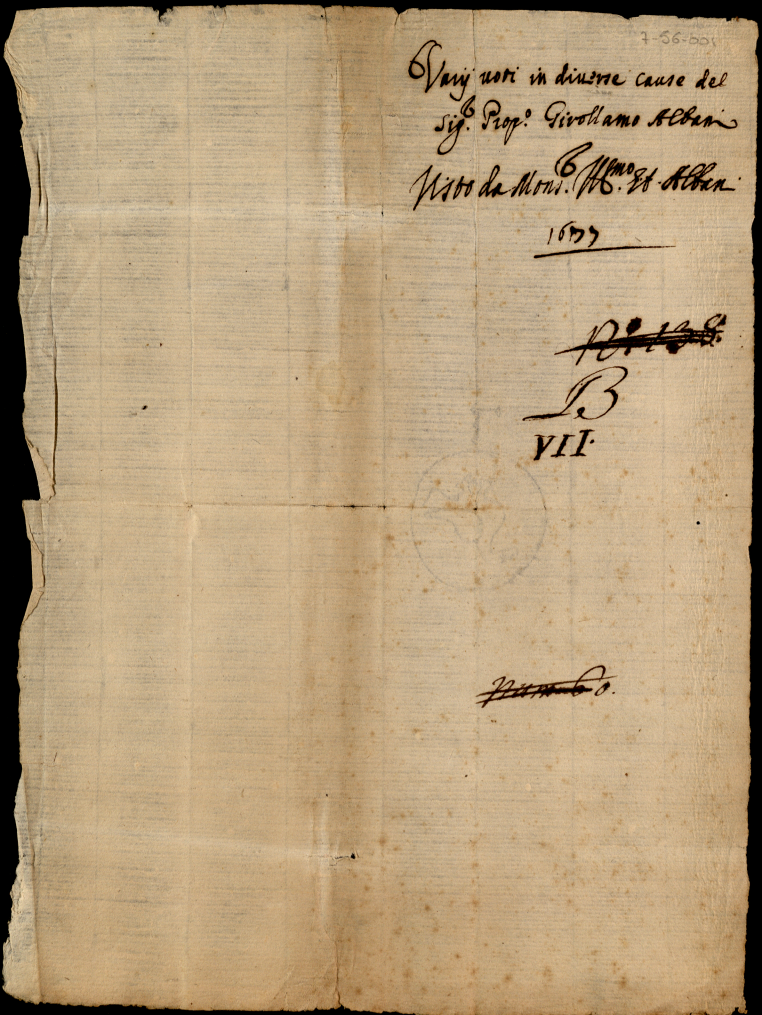 7-56-001
Varij uoti in diuerse cause del
Sig.r Prop.o Girollamo Albani
Visto da Mons.r Ill.mo Albani
1677
N.o 138.
B
VII.